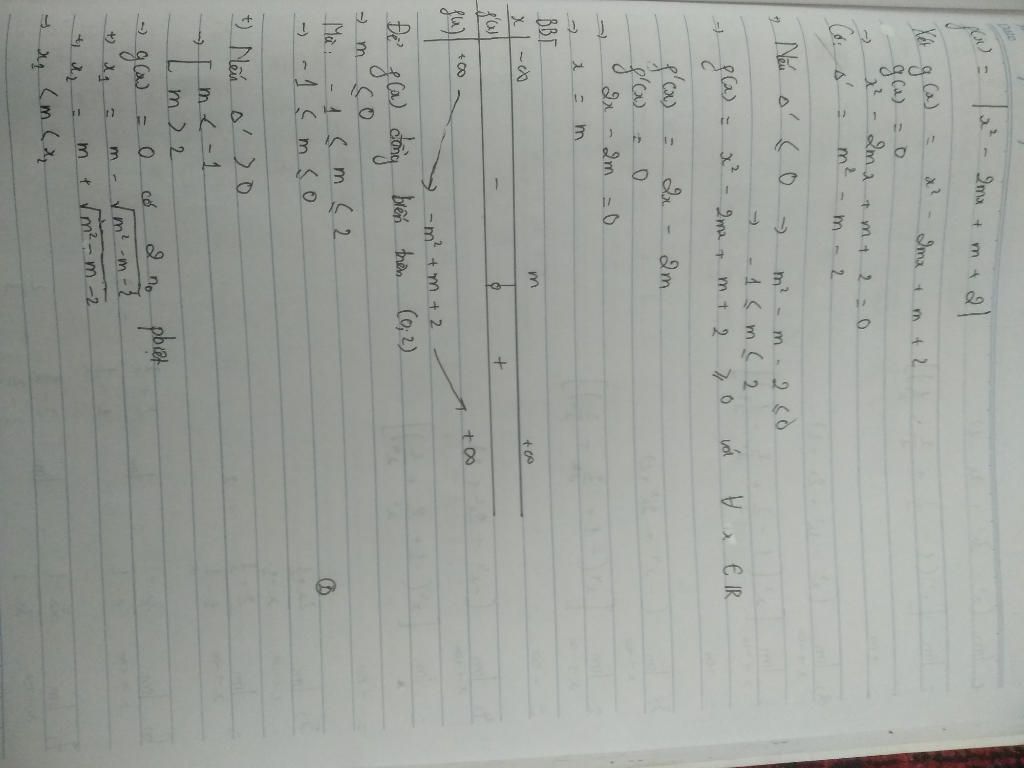 f(x) = | x² - 2mx + m + 2 |
Xét g(x) = x² - 2mx + m + 2
g(x) = 0
→ x² - 2mx + m + 2 = 0
Có: Δ' = m² - m - 2
+ Nếu Δ' ≤ 0 → m² - m - 2 ≤ 0
→ -1 ≤ m ≤ 2
→ g(x) = x² - 2mx + m + 2 ≥ 0 với ∀ x ∈ R
g'(x) = 2x - 2m
g'(x) = 0
→ 2x - 2m = 0
→ x = m
BBT
x -∞ m +∞
g'(x) - 0 +
g(x) +∞ -m² + m + 2 +∞
Để g(x) đồng biến trên (0, 2)
→ m ≤ 0
Mà: -1 ≤ m ≤ 2
→ -1 ≤ m ≤ 0 ①
+) Nếu Δ' > 0
→ [ m < -1
m > 2
→ g(x) = 0 có 2 n₀ pbiệt
+, x₁ = m - √m² - m - 2
+, x₂ = m + √m² - m - 2
→ x₁ < m < x₂